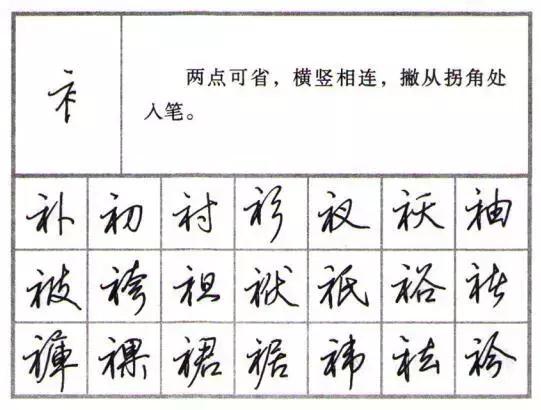 衤
两点可省，横竖相连，撇从拐角处
入笔。
补 初 衬 衫 衩 袄 袖
被 袴 袒 袱 裕
裸 裙 裾 袆 袪 衿